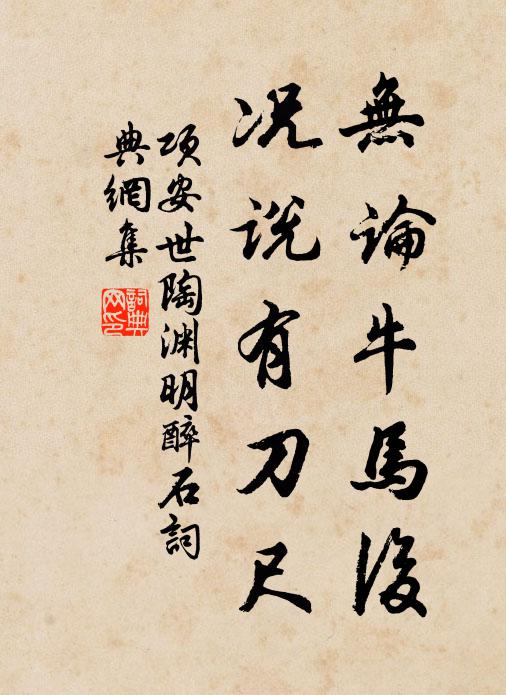 無論牛馬後
況説有刀尺
項安世陶渊明醉石詞
典網集
詞典網印